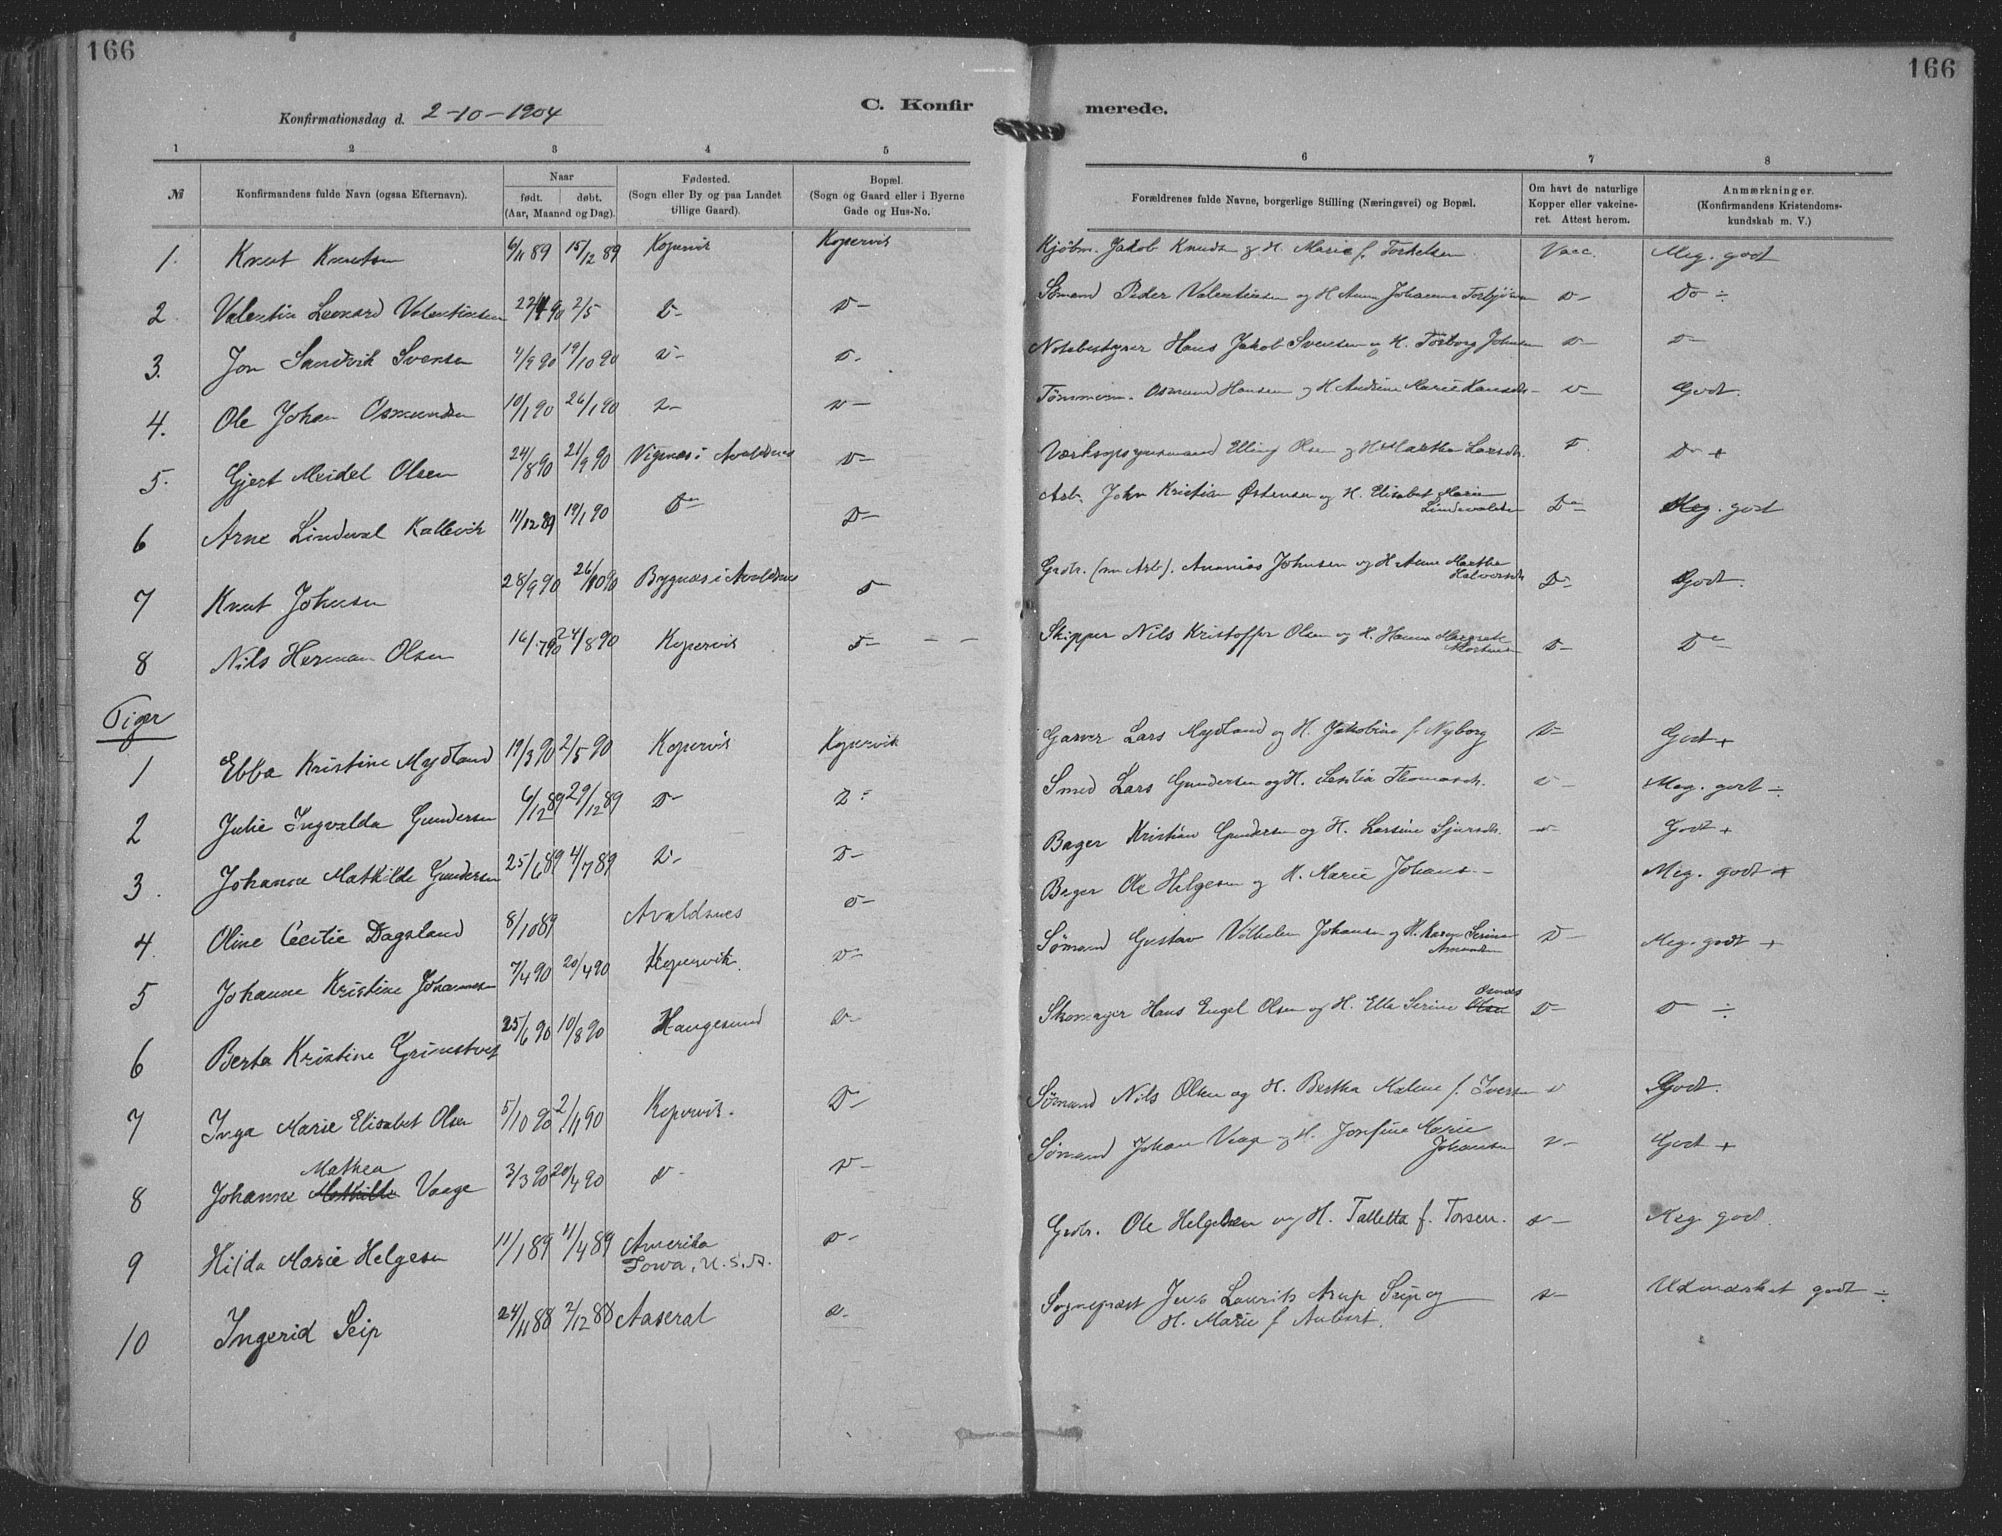 166
166
Konfirmationsdag d. 2-10-1904
C. Konfir
merede.
1 2 3 4 5 6 7 8
№
Konfirmandens fulde Navn (ogsaa Efternavn).
Naar
født. døbt.
(Aar, Maaned og Dag).
Fødested.
(Sogn eller By og paa Landet
tillige Gaard).
Bopæl.
(Sogn og Gaard eller i Byerne
Gade og Hus-No.
Forældrenes fulde Navne, borgerlige Stilling (Næringsvei) og Bopæl.
Om havt de naturlige
Kopper eller vakcine-
ret. Attest herom.
Anmærkninger.
(Konfirmandens Kristendoms-
kundskab m. V.)
1. Knut Knutsen 6/11 89 15/12 89 Kopervik Kopervik Kjøbm. Jakob Knudsen og H. Marie f. Torkelsen. Vacc. Meg. godt
2. Valentin Leonard Valentinsen 22/4 90 2/5 D- D- Sømand Peder Valentinsen og H. Anna Johanna Torbjørnsen D- Do ÷
3. Jon Sandvik Svensen 4/9 90 19/10 90 D- D- Notebestyrer Hans Jakob Svensen og H. Torborg Johnsen D- D-
4. Ole Johan Osmundsen 10/1 90 26/1 90 D- D- Tømmerm. Osmund Hansen og H Andrine Marie Hansdr- D- Godt.
5. Gjert Meidel Olsen 24/8 90 21/9 90 Vigsnæs i Avaldsnes D- Elling Olsen og H Martha Larsdr. D. Do +
6 Arne Lindeval Kallevik 11/12 89 19/1 90 Do D- Arb. John Kristian Østensen og H. Elisabet Marie
Lindevalsen Do Meg. godt
7 Knut Johnsen 28/9 90 26/10 90 Bygnæs i Avaldsnes D- Grdr. (nu Arb). Ananias Johnsen og H Anne Martha
Halvorsdr D- Godt.
8 Nils Herman Olsen 16/7 90 24/8 90 Kopervik D- - - Skipper Nils Kristoffer Olsen og H. Hanna Margrete
Mortensen D- Do
Piger
1 Ebba Kristine Mydland 19/3 90 2/5 90 Kopervik Kopervik Garver Lars Mydland og H. Jakobine f. Nyborg D- Godt +
2 Julie Ingvalda Gundersen 6/12 89 29/12 89 D- D- Smed Lars Gundersen og H. Thomasdr. D- Meg. godt ÷
3. Johanne Mathilde Gundersen 25/6 89 4/7 89 D- D- Bager Kristian Gundersen og H. Larsine Sjursdr. D- Godt +
4. Oline Cecilie Dagsland 8/10 89 Avaldsnes D- Bager Ole Helgesen og H. Marie Johans - Meg. godt +
5 Johanne Kristine Johannesen 7/4 90 20/4 90 Kopervik. D- Sømand Gustav Vilhelm Johansen og H. Karen Serine
Amundsen D- Meg. godt +
6 Berta Kristine Grimstvet 25/6 90 10/8 90 Haugesund D- Skomager Hans Engel Olsen og H. Ella Serine Olsen
Osnæs D- D ÷
7 Inga Marie Elisabet Olsen 5/10 90 2/11 90 Kopervik. D- Sømand Nils Olsen og H. Bertha Malene f. Iversen D Godt.
8 Johanne Mathilde Vaage
Mathea 3/3 90 20/4 90 D- D- Sømand Johan Vaage og H. Josefine Marie
Johansen D- Godt +
9 Hilda Marie Helgesen 11/1 89 11/4 89 Amerika
Iowa, U.S.A. D- Grdr. Ole Helgesen og H. Talletta f. Torsen. D- Meg godt.
10 Ingerid Seip 24/11 88 2/12 88 Aaseral D- Sogneprest Jens Laurits Arup Seip og
H. Marie f Aubert. D- Udmærket godt ÷